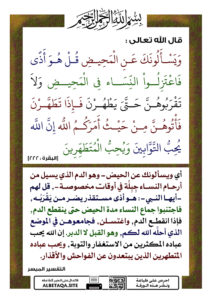 بِسْمِ اللَّهِ الرَّحْمَنِ الرَّحِيمِ
قال الله تعالى :
وَيَسْأَلُونَكَ عَنِ الْمَحِيضِ قُلْ هُوَ أَذًى
فَاعْتَزِلُواْ النِّسَاء فِي الْمَحِيضِ وَلاَ
تَقْرَبُوهُنَّ حَتَّىَ يَطْهُرْنَ فَإِذَا تَطَهَّرْنَ
فَأْتُوهُنَّ مِنْ حَيْثُ أَمَرَكُمُ اللّهُ إِنَّ اللّهَ
يُحِبُّ التَّوَّابِينَ وَيُحِبُّ الْمُتَطَهِّرِينَ
[البقرة : ٢٢٢]
أي ويسألونك عن الحيض - وهو الدم الذي يسيل من
أرحام النساء جِبِلَّة في أوقات مخصوصة - ، قل لهم
-أيها النبي- : هو أذى مستقذر يضر من يَقْرَبُه،
فاجتنبوا جماع النساء مدة الحيض حتى ينقطع الدم،
فإذا انقطع الدم، واغتسلن، فجامعوهن في الموضع
الذي أحلَّه الله لكم، وهو القبل لا الدبر. إن الله يحب
عباده المكثرين من الاستغفار والتوبة، ويحب عباده
المتطهرين الذين يبتعدون عن الفواحش والأقذار.
التفسير الميسر
احرص على طباعة
ونشر هذه الورقة
ALBETAQA.SITE